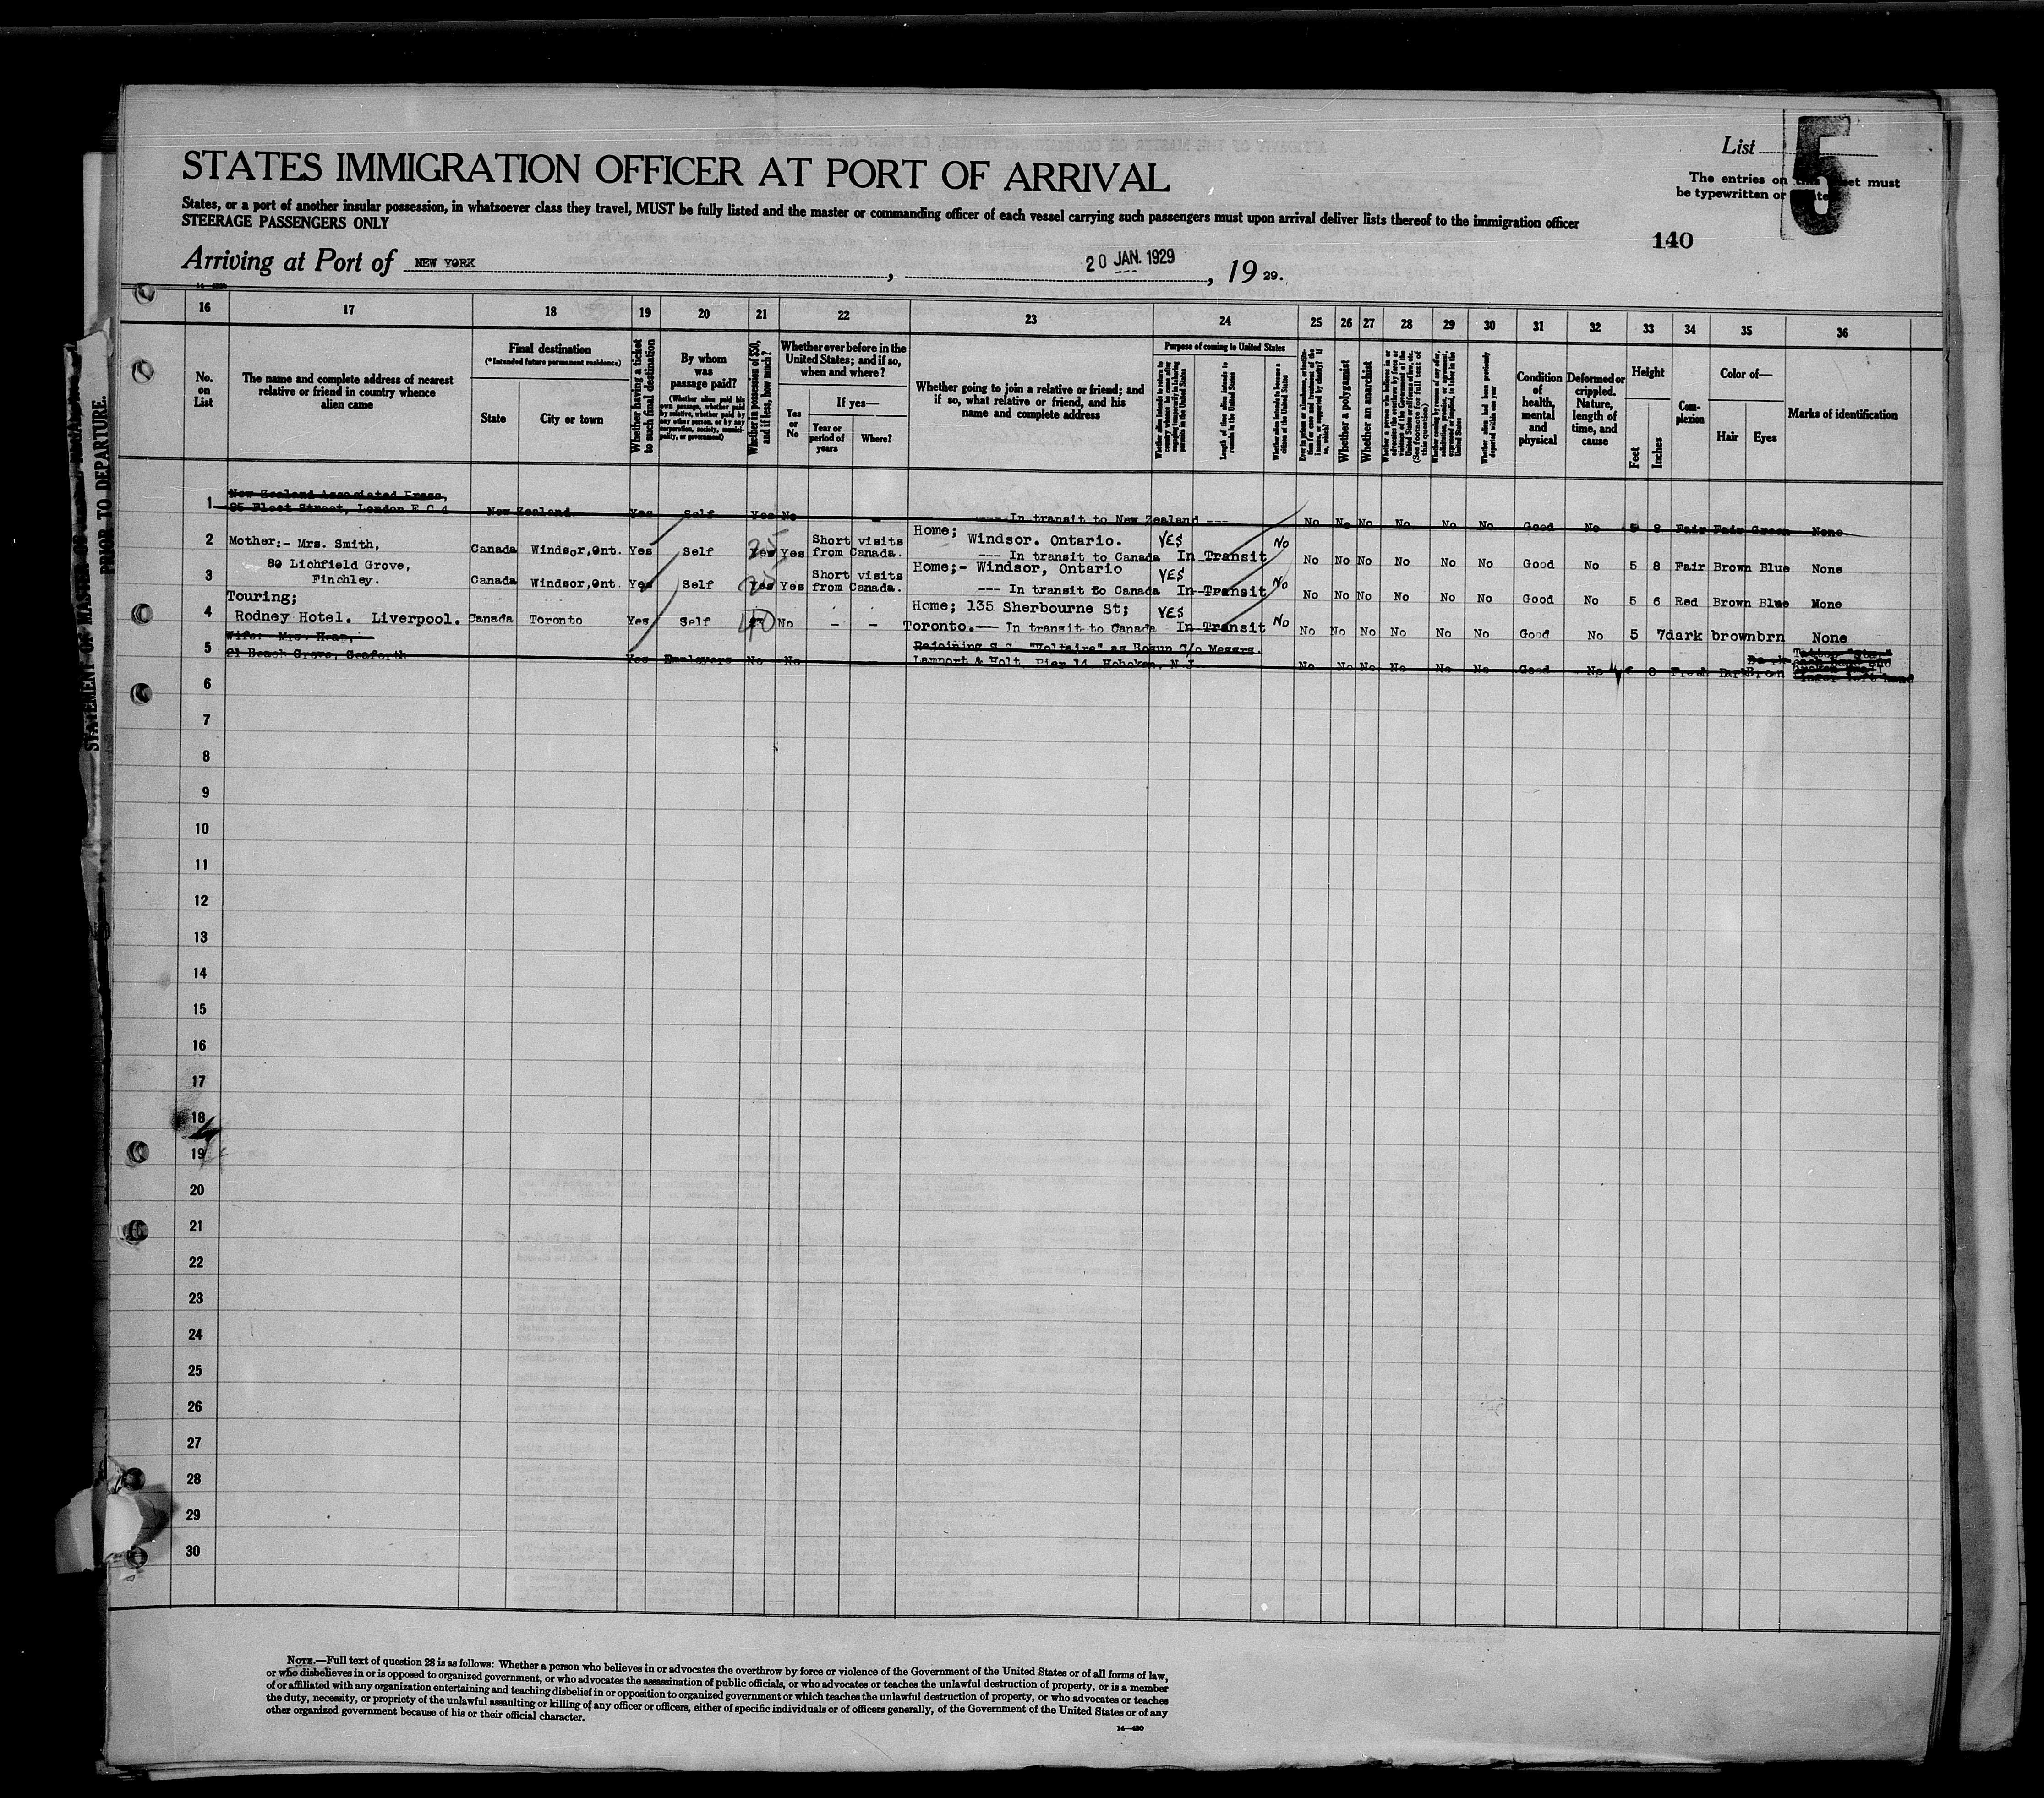 List 5
STATES IMMIGRATION OFFICER AT PORT OF ARRIVAL
The entries on this sheet must
be typewritten or
States, or a port of another insular possession, in whatsoever class they travel, MUST be fully listed and the master or commanding officer of each vessel carrying such passengers must upon arrival deliver lists thereof to the immigration officer
STEERAGE PASSENGERS ONLY
140
Arriving at Port of NEW YORK, 20 JAN. 1929, 19 29.
16 17 18 19 20 21 22 23 24 25 26 27 28 29 30 31 32 33 34 35 36
No. on List
The name and complete address of nearest relative or friend in country whence alien came
Final destination
(*Intended future permanent residence)
State
City or town
Whether having a ticket to such final destination
By whom was passage paid?
(Whether alien paid his own passage, whether paid by relative, whether paid by any other person, or by any corporation, society, municipality, or government)
Whether in possession of $50, and if less, how much?
Whether ever before in the United States; and if so, when and where?
Yes or No
If yes—
Year or period of years
Where?
Whether going to join a relative or friend; and if so, what relative or friend, and his name and complete address
Purpose of coming to United States
Whether alien intends to return to country whence he came after engaging temporarily in laboring pursuits in the United States
Length of time alien intends to remain in the United States
Whether alien intends to become a citizen of the United States
Whether a polygamist
Whether an anarchist
(See footnote for full text of this question)
Whether alien had been previously deported within one year
Condition of health, mental and physical
Deformed or crippled. Nature, length of time, and cause
Height
Feet
Inches
Complexion
Color of—
Hair
Eyes
Marks of identification
New Zealand Associated Press,
1 85 Fleet Street, London E.C.4 New Zealand. Yes Self Yes No - --- In transit to New Zealand --- No No No No No No Good No 5 8 Fair Fair Green None
2 Mother:- Mrs. Smith, Canada Windsor,Ont. Yes Self Yes 25 Yes Short visits from Canada. Home; Windsor. Ontario. --- In transit to Canada YES In Transit No No No No No No No Good No 5 8 Fair Brown Blue None
80 Lichfield Grove,
3 Finchley. Canada Windsor,Ont. Yes Self Yes 25 Yes Short visits from Canada. Home;- Windsor, Ontario --- In transit to Canada YES In Transit No No No No No No No Good No 5 6 Red Brown Blue None
Touring;
4 Rodney Hotel. Liverpool. Canada Toronto Yes Self 40 No - - Home; 135 Sherbourne St; Toronto.-- In transit to Canada YES In Transit No No No No No No No Good No 5 7 dark brown brn None
Wife: Mrs. Heap,
5 21 Beach Grove, Seaforth Yes Employers No No Rejoining S.S. "Voltaire" as Bosun C/o Messrs. Lamport & Holt, Pier 14, Hoboken, N.J. No No No No No No Good No 8 Fresh Dark Brown
6
7
8
9
10
11
12
13
14
15
16
17
18
19
20
21
22
23
24
25
26
27
28
29
30
NOTE.—Full text of question 28 is as follows: Whether a person who believes in or advocates the overthrow by force or violence of the Government of the United States or of all forms of law,
or who disbelieves in or is opposed to organized government, or who advocates the assassination of public officials, or who advocates or teaches the unlawful destruction of property, or is a member
of or affiliated with any organization entertaining and teaching disbelief in or opposition to organized government or which teaches the unlawful destruction of property, or who advocates or teaches
the duty, necessity, or propriety of the unlawful assaulting or killing of any officer or officers, either of specific individuals or of officers generally, of the Government of the United States or of any
other organized government because of his or their official character.
14—430
PRIOR TO DEPARTURE.
STATEMENT OF MASTER OF